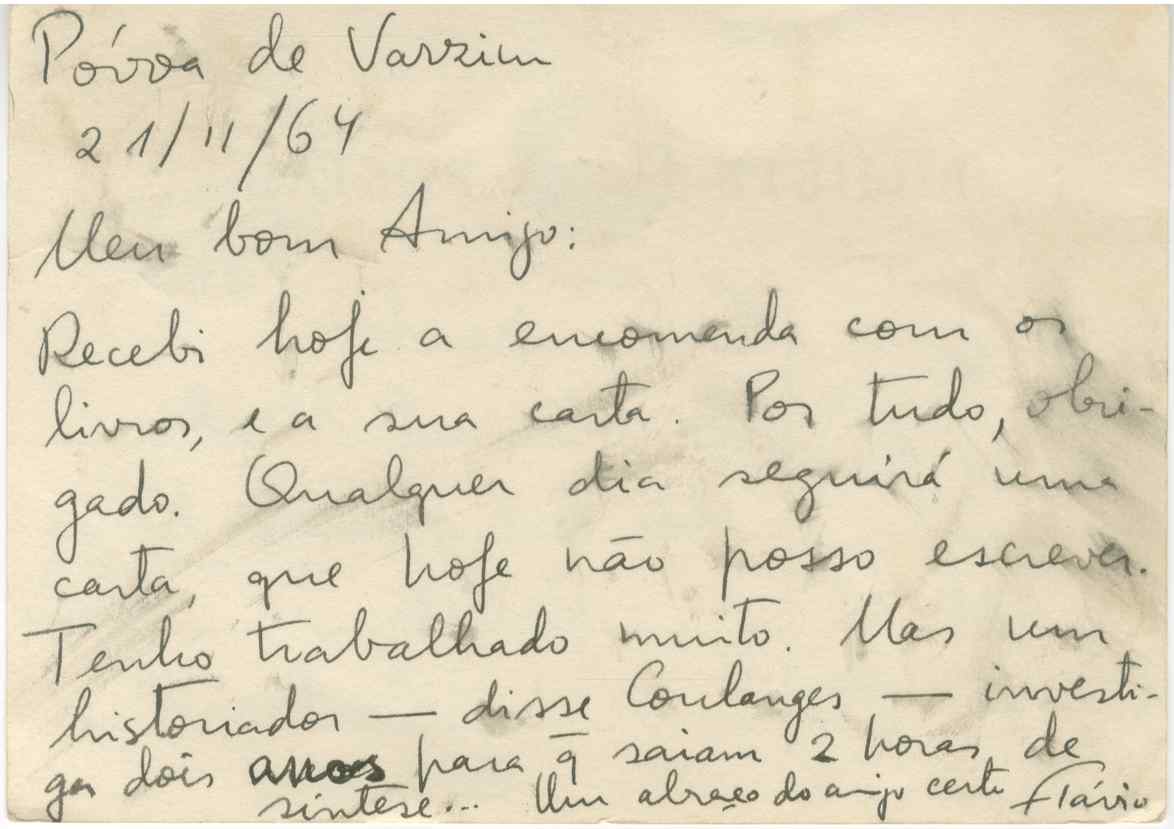 Póvoa de Varzim
21/11/64
Meu bom Amigo:
Recebi hoje a encomenda com os
livros, e a sua carta. Por tudo, obri-
gado. Qualquer dia seguirá uma
carta, que hoje não posso escrever.
Tenho trabalhado muito. Mas um
historiador — disse Coulanges — investi-
ga dois anos para q̄ saiam 2 horas de
síntese... Um abraço do amigo certo Flávio